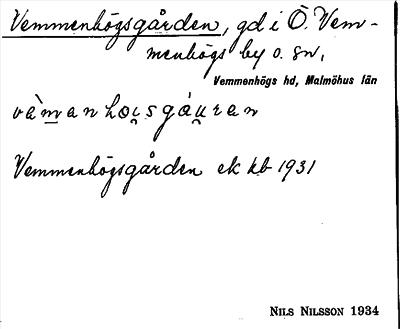 Vemmenhögsgården, gd i Ö. Vem-
menhögs by o. sn,
Vemmenhögs hd, Malmöhus län
Vemmenhögsgården ek kb 1931
NILS NILSSON 1934